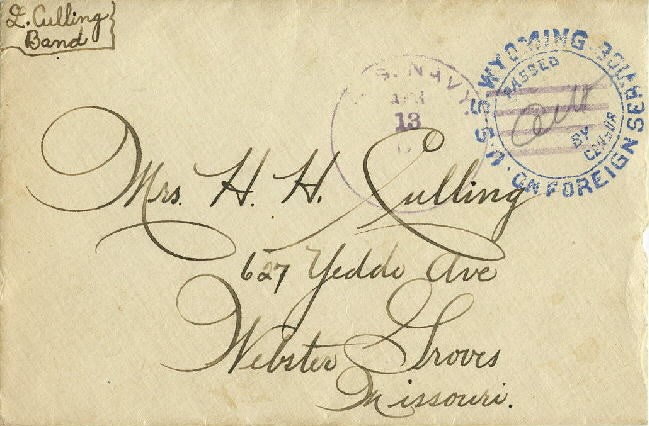 L. Culling
Band
U.S. NAVY
APR
13
U.S.S. WYOMING
ON FOREIGN SERVICE
PASSED
BY
CENSOR
Mrs. H. H. Culling
627 Yeddo Ave
Webster Groves
Missouri.